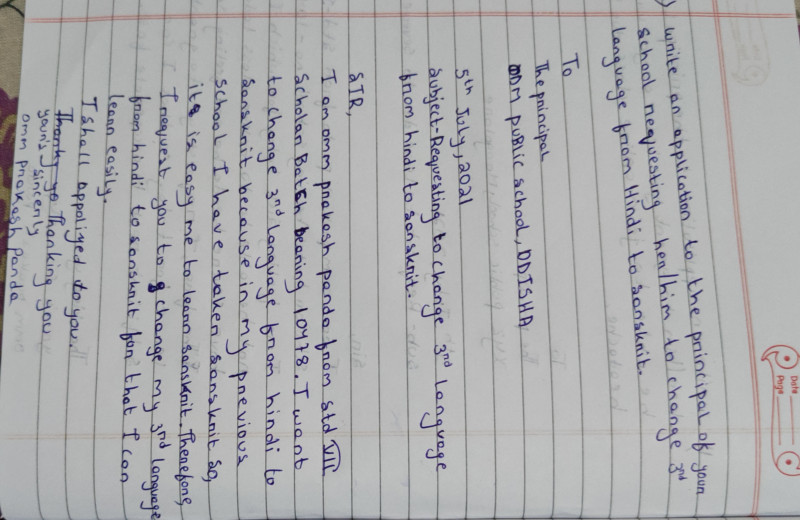 Date
Page
Write an application to the principal of your
school requesting her/him to change 3rd
language from Hindi to sanskrit.
To
The principal
ODM public school, ODISHA
5th July, 2021
Subject-Requesting to change 3rd language
from hindi to sanskrit.
SIR,
I am omm prakash panda from std VII
Scholar Batch bearing 10478. I want
to change 3rd language from hindi to
sanskrit because in my previous
school I have taken sanskrit so,
its is easy me to learn sanskrit. Therefore,
I request you to change my 3rd language
from hindi to sanskrit for that I can
learn easily.
I shall appoliged to you.
Thank yo Thanking you
your's sincerly
omm prakash Panda